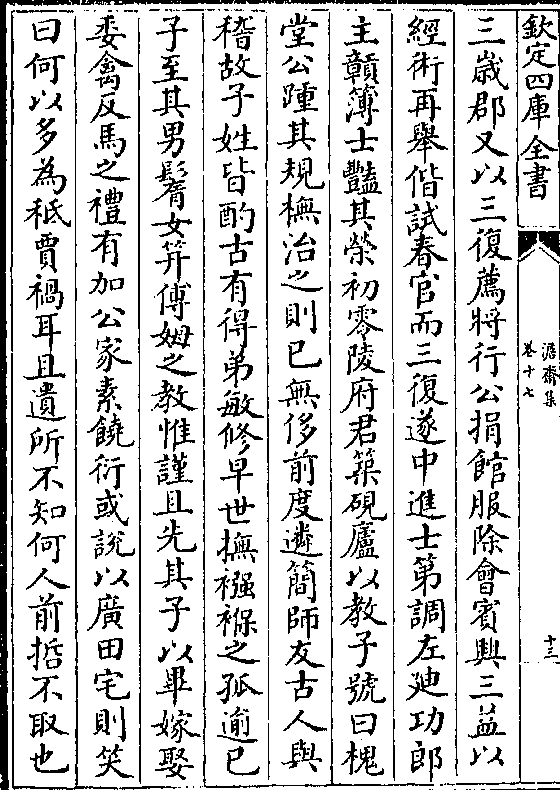 欽定四庫全書
澹齋集
卷十七
十三
三歲郡又以三復薦將行公捐館服除會賓興三益以
經術再舉偕試春官而三復遂中進士第調左廸功郎
主贑簿士豔其榮初零陵府君築硯廬以教子號曰槐
堂公踵其規橅治之則已無侈前度遴簡師友古人與
稽故子姓皆酌古有得弟敏修早世撫襁褓之孤逾已
子至其男鬌女笄傅姆之教惟謹且先其子以畢嫁娶
委禽反馬之禮有加公家素饒衍或說以廣田宅則笑
曰何以多為秪賈禍耳且遺所不知何人前哲不取也